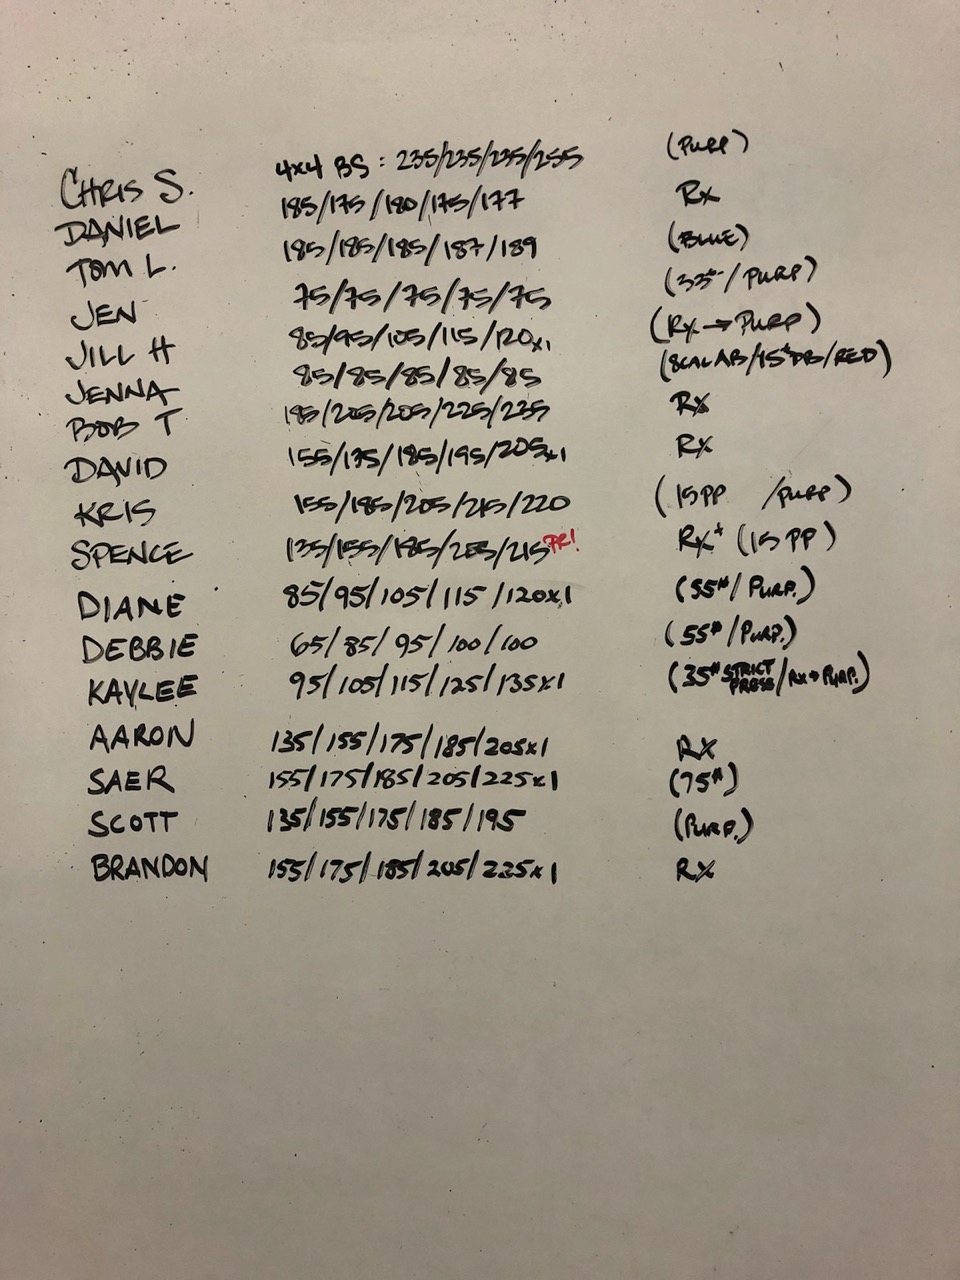 CHRIS S. 4x4 BS: 235/235/235/255 (PURP)
DANIEL 185/175/180/175/177 Rx
TOM L. 185/185/185/187/189 (BLUE)
JEN 75/75/75/75/75 (33#/PURP)
JILL H 85/95/105/115/120x1 (Rx→PURP)
JENNA 85/85/85/85/85 (SCAL AB/15#DB/RED)
BOB T 185/205/205/225/235 Rx
DAVID 155/175/185/195/205x1 Rx
KRIS 155/185/205/215/220 (15PP /PURP)
SPENCE 135/155/185/205/215 PR! Rx+ (15 PP)
DIANE 85/95/105/115/120x1 (55#/PURP.)
DEBBIE 65/85/95/100/100 (55#/PURP.)
KAYLEE 95/105/115/125/135x1 (35# STRICT PRESS/Rx→PURP.)
AARON 135/155/175/185/205x1 RX
SAER 155/175/185/205/225x1 (75#)
SCOTT 135/155/175/185/195 (PURP.)
BRANDON 155/175/185/205/225x1 RX